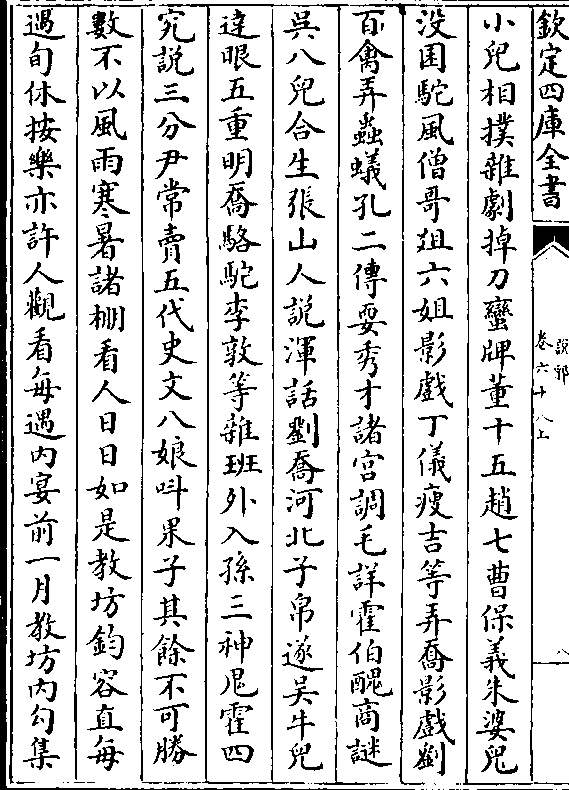 欽定四庫全書
說郛
卷六十八上
八
小兒相撲雜劇掉刀蠻牌董十五趙七曹保義朱婆兒
没困駝風僧哥俎六姐影戲丁儀瘦吉等弄喬影戲劉
百禽弄蟲蟻孔二傳耍秀才諸宫調毛詳霍伯醜商謎
吳八兒合生張山人說渾話劉喬河北子帛遂吳牛兒
達眼五重明喬駱駝李敦等雜班外入孫三神鬼霍四
究說三分尹常賣五代史文八娘呌果子其餘不可勝
數不以風雨寒暑諸棚看人日日如是教坊鈞容直每
遇旬休按樂亦許人觀看每遇内宴前一月教坊内勾集